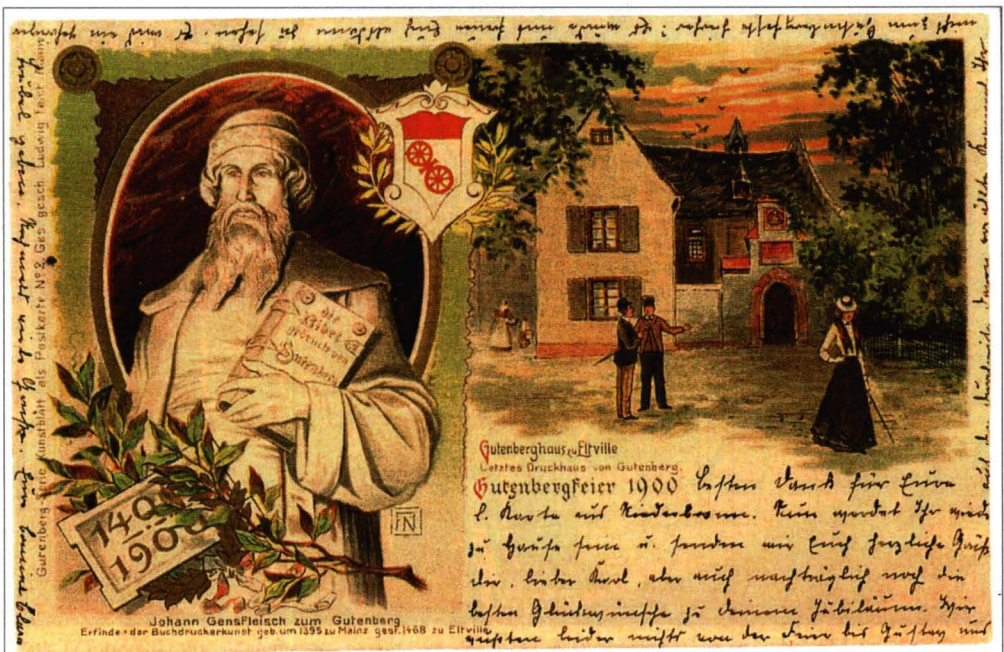 Gutenberg-Serie Kunstblatt als Postkarte No 2. Ges. gesch. Ludwig Feist Mainz
die
Bibel
gedruck von
Gutenberg
1400
1900
FN
Johann Gensfleisch zum Gutenberg
Erfinder der Buchdruckerkunst geb. um 1395 zu Mainz gest. 1468 zu Eltville
Gutenberghaus zu Eltville
Letztes Druckhaus von Gutenberg.
Gutenbergfeier 1900
Besten Dank für Eure
l. Karte aus Niederbronn. Nun werdet Ihr wieder
zu Hause sein u. senden wir Euch herzliche Grüße
dir, lieber Karl, aber auch nachträglich noch die
besten Glückwünsche zu deinem Jubiläum. Wir
wußten leider nichts von der Feier bis Gustav uns
auf der Kommt Ihr
nicht zum Gutenbergfeste hierher? Es würde uns freuen Euch alsdann zu sehen. Es wird ein
Trubel geben. Grüße.